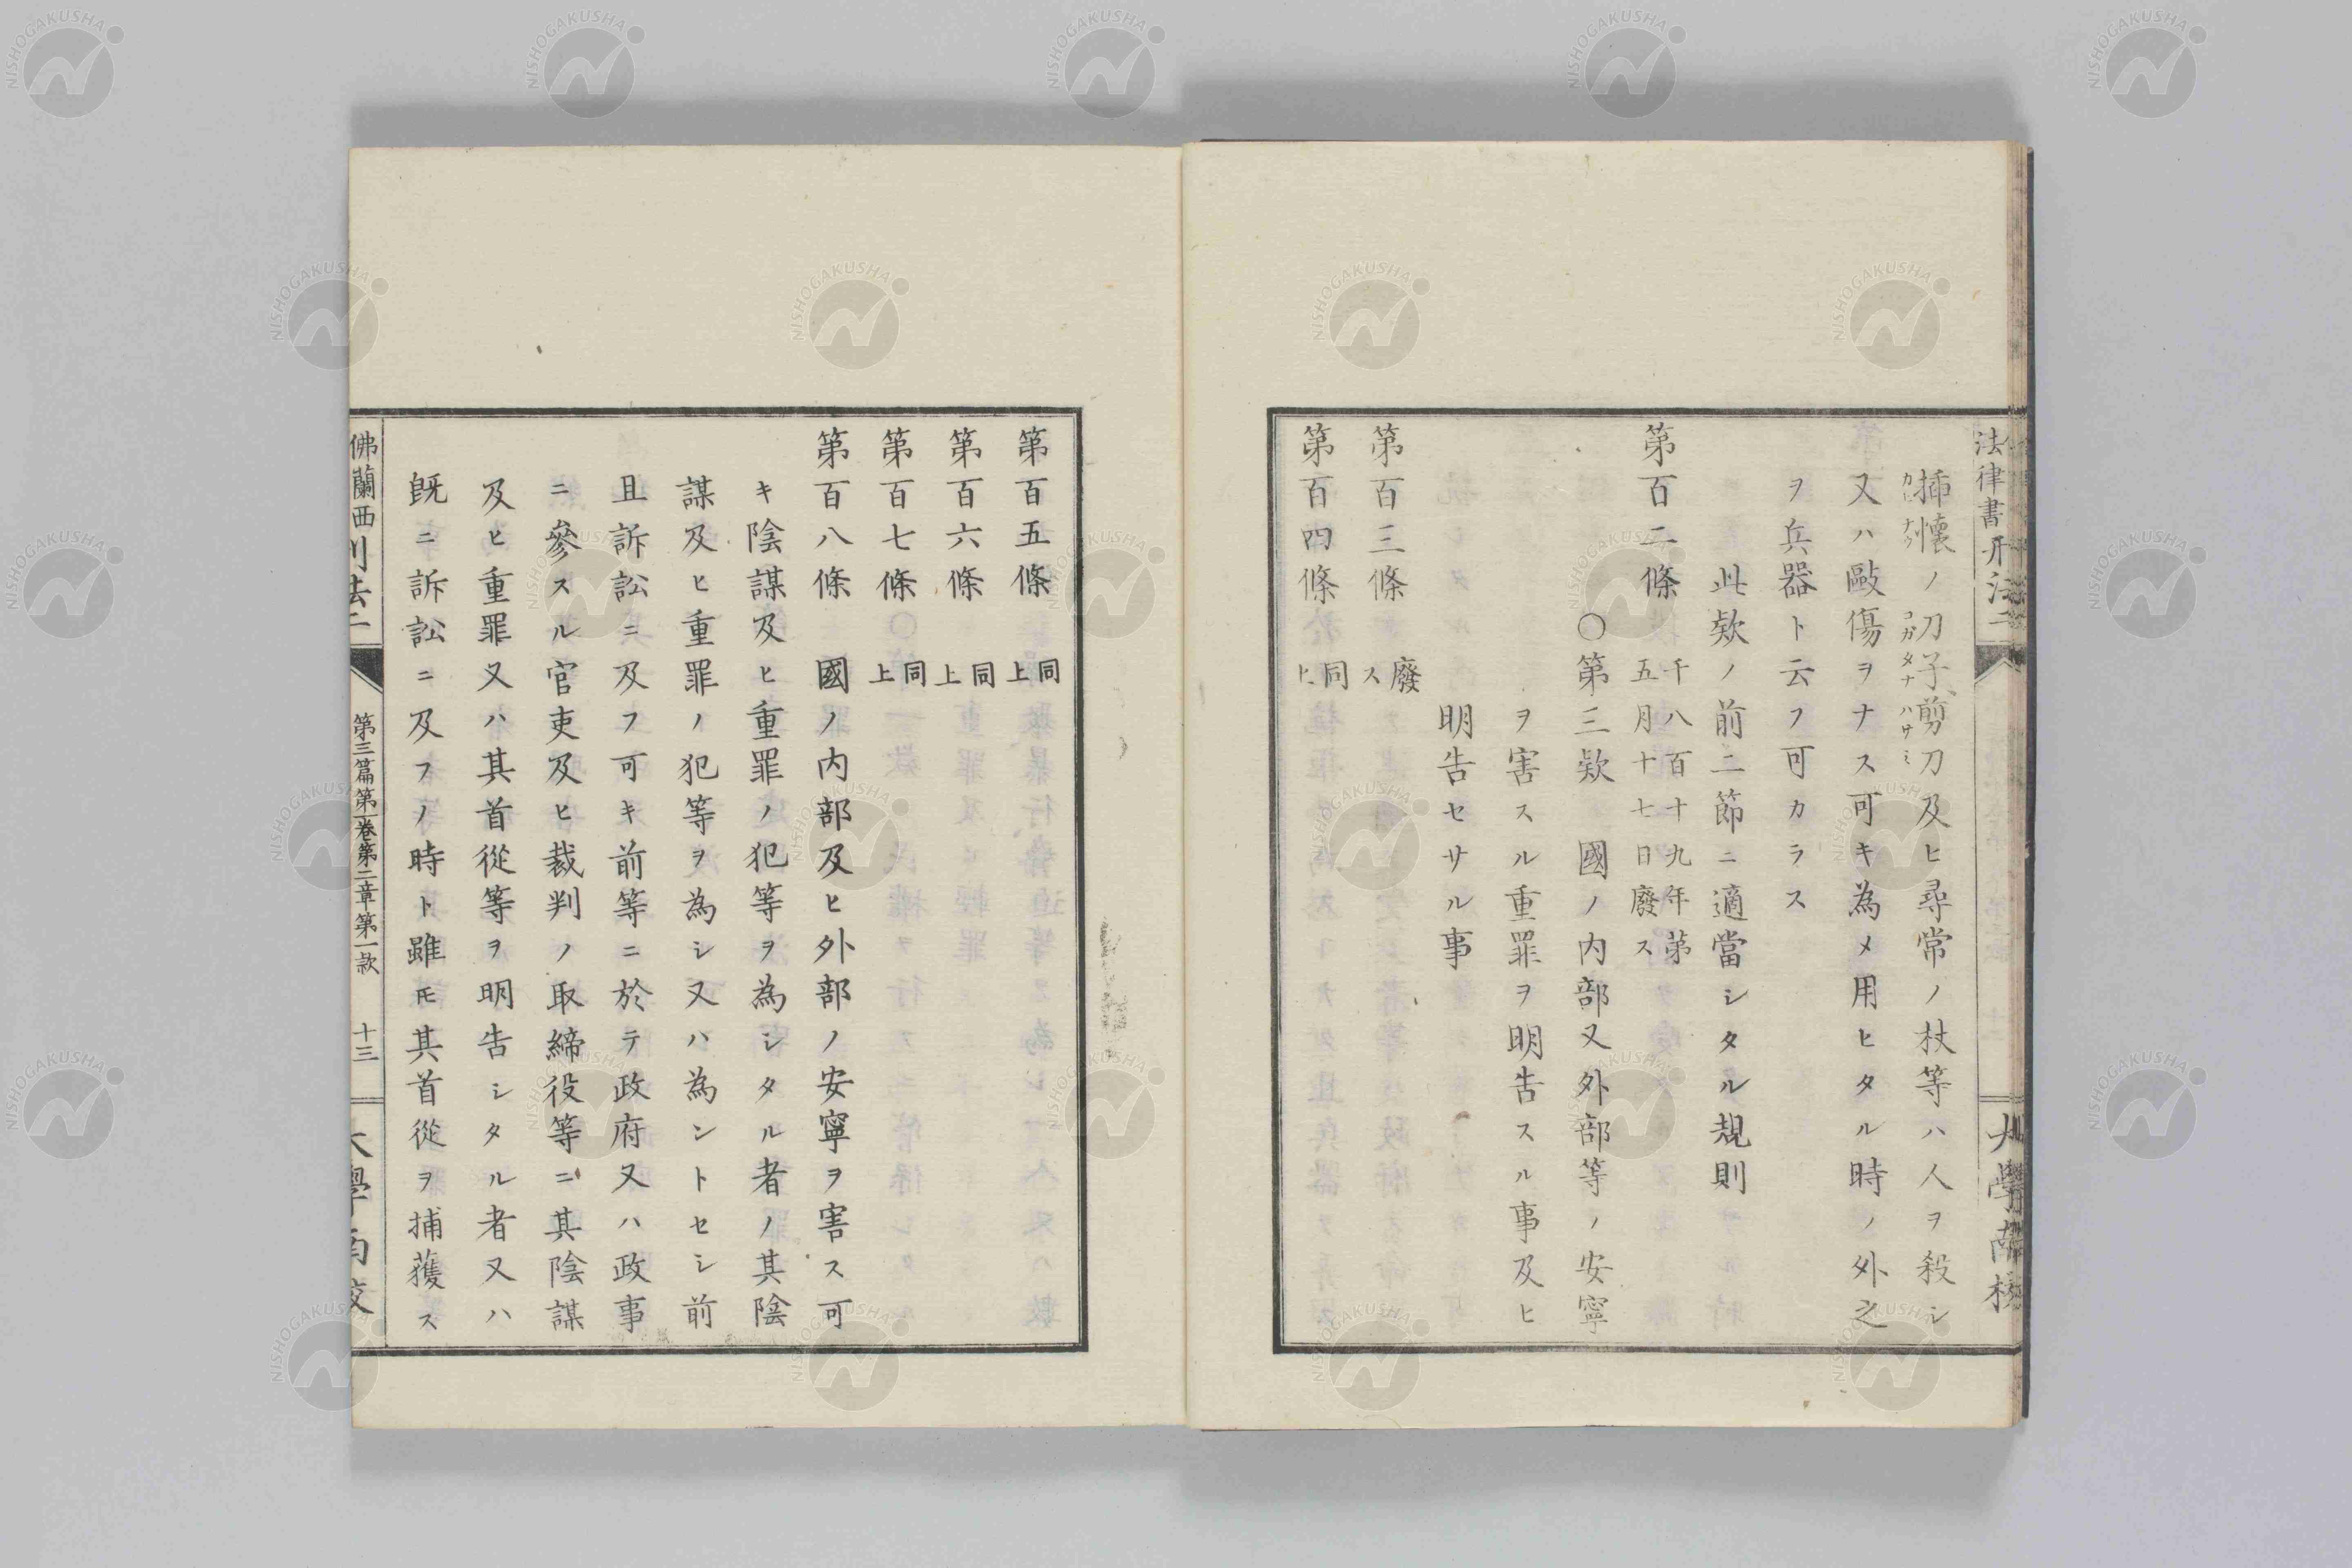 挿懷ノ刀子剪刀及ヒ尋常ノ杖等ハ人ヲ殺シ
又ハ毆傷ヲナス可キ為メ用ヒタル時ノ外之
ヲ兵器ト云フ可カラス
此欵ノ前二節ニ適當シタル規則
第百二條 千八百十九年第五月十七日廢ス
〇第三欵 國ノ内部又外部等ノ安寧
ヲ害スル重罪ヲ明告スル事及ヒ
明告セサル事
第百三條 廢ス
第百四條 同上
第百五條 同上
第百六條 同上
第百七條 同上
第百八條 國ノ内部及ヒ外部ノ安寧ヲ害ス可
キ陰謀及ヒ重罪ノ犯等ヲ為シタル者ノ其陰
謀及ヒ重罪ノ犯等ヲ為シ又ハ為ントセシ前
且訴訟ニ及フ可キ前等ニ於テ政府又ハ政事
ニ參スル官吏及ヒ裁判ノ取締役等ニ其陰謀
及ヒ重罪又ハ其首從等ヲ明告シタル者又ハ
既ニ訴訟ニ及フノ時ト雖モ其首從ヲ捕獲ス
佛蘭西刑法二 第三篇第一卷第二章第一款 十三 大學南校
NISHOGAKUSHA